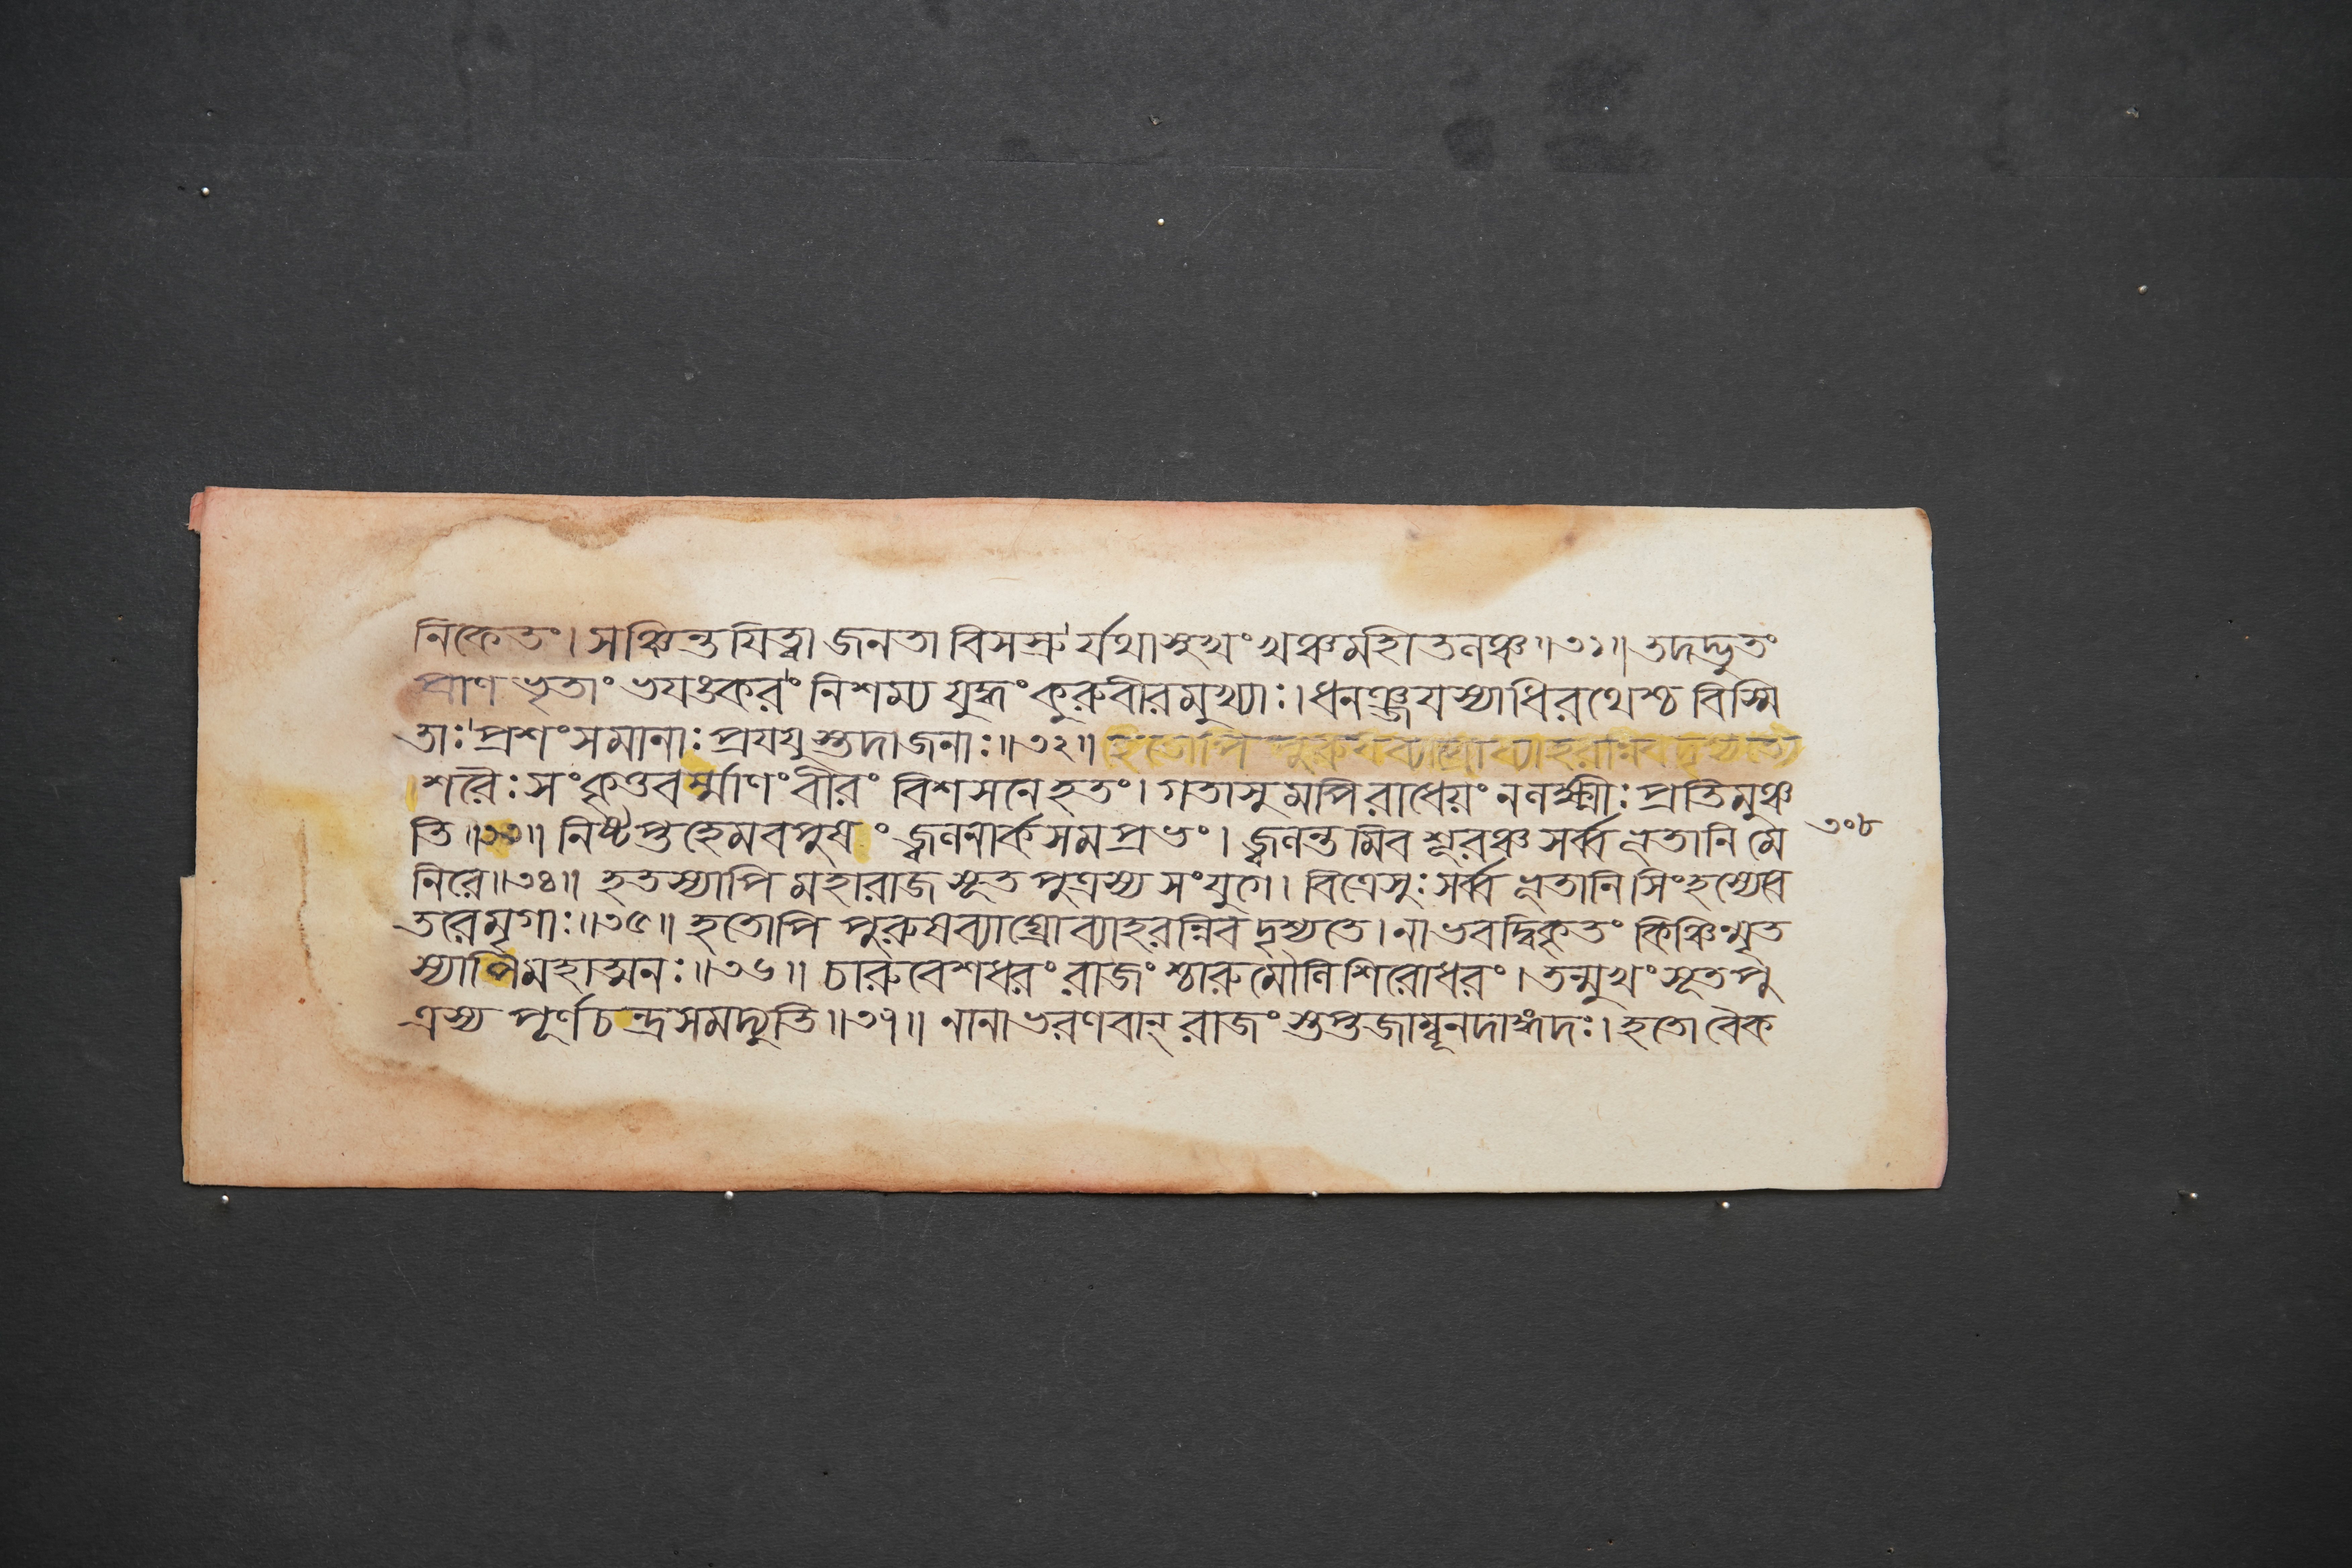 নিকেতং। সঞ্চিন্তযিত্বা জনতা বিসস্রুর্যথাসুখং খঞ্চমহীতলঞ্চ॥৩১॥ তদদ্ভুতং
প্রাণভৃতাং ভযঙ্করং নিশম্য যুদ্ধং কুরুবীরমুখ্যাঃ। ধনঞ্জযস্যাধিরথেশ্চ বিস্মি
তাঃ প্রশংসমানাঃ প্রযযুস্তদাজনাঃ॥৩২॥ হতোপি পুরুষব্যাঘ্রোব্যাহরন্নিবদৃশ্যতে
শরৈঃ সংকৃত্তবর্ম্মাণং বীরং বিশসনেহতং। গতাসুমপিরাধেয়ং নলক্ষ্মীঃ প্রতিমুঞ্চ
তি॥৩৩॥ নিষ্টপ্তহেমবপুষং জ্বলনার্কসমপ্রভং। জ্বলন্তমিব শূরঞ্চ সর্ব্বভূতানি মে
নিরে॥৩৪॥ হতস্যাপি মহারাজ সূতপুত্রস্য সংযুগে। বিত্রেসুঃ সর্ব্বভূতানি সিংহস্যেব
তরেমৃগাঃ॥৩৫॥ হতোপি পুরুষব্যাঘ্রোব্যাহরন্নিব দৃশ্যতে। নাভবদ্বিকৃতং কিঞ্চিন্মৃত
স্যাপিমহাত্মনঃ॥৩৬॥ চারুবেশধরং রাজংশ্চারুমৌলিশিরোধরং। তন্মুখং সূতপু
ত্রস্য পূর্ণচন্দ্রসমদ্যুতি॥৩৭॥ নানাভরণবান্ রাজংস্তপ্তজাম্বূনদাঙ্গদঃ। হতোবৈক
৩০৮